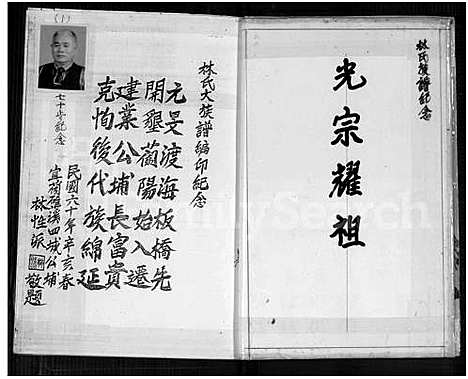 林氏族譜紀念
光宗耀祖
林氏大族譜編印紀念
元旻渡海板橋先
開墾蘭陽始入遷
建業公埔長富貴
克恂後代族綿延
民國六十年辛亥春
宜蘭礁溪四城公埔
林性派 敬題
七十歲紀念
(1)
FamilySearch